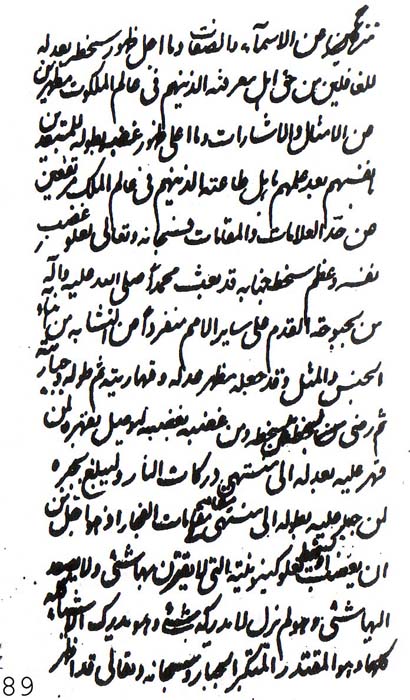 من الاسمآء والصفات وما اجل ظهور سخطه بعدله
للغافلين من حق اهل معرفته الذينهم فى عالم الملكوت مظهرين
من الامثال والاشارات وما اعلى ظهور غضبه بطوله للمبتعدين
بانفسهم بعد علمهم باهل طاعته الذينهم فى عالم الملك مرتفعين
من حد العلامات والمقامات فسبحانه وتعالى لعلو غضب
نفسه وعظم سخط جنابه قد بعث محمداً صلى الله عليه وآله
من بحبوحة القدم على ساير الامم منفرداً من التشابه من
الجنس والمثل وقد جعله مظهر عدله وقهاريته ثم طوله وجباريته
ثم رضى من سخطه وغضبه بغضبه ليوصل بقهره لمن
قهر عليه بعدله الى منتهى دركات النار وليبلغ بجبره
لمن جبر عليه بطوله الى منتهى مقامات الفجار اذ هو اجل من
ان يغضب لعلو كينونيته التى لا يقترن بها شئ ولا يصعد
اليها شئ وهو لم يزل لا يدركه شئ وهو يدرك الاشياء
كلها وهو المقتدر المتكبر الجبار وسبحانه وتعالى قد اظهر
89